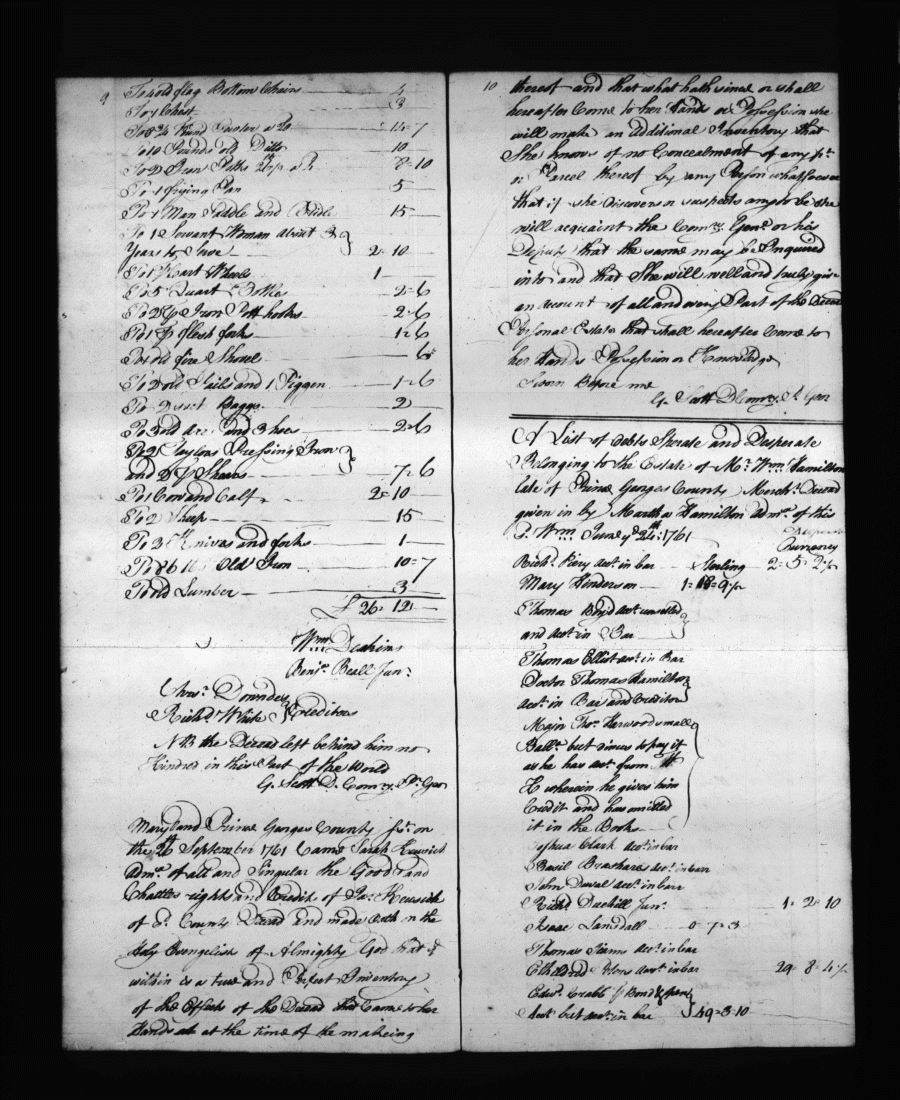 9
To 4 old flag Bottom Chairs 4
To 1 Chest 3
To 10 Pounds old Ditto 10
To 2 Iron Potts 8-10
To 1 frying Pan 5
To 1 Man Saddle and Bridle 15
To 1 Servant Woman about 3
Years to Serve 2-10
To 1 Cart Wheels 1
To 5 Quart Bottles 2-6
To 2 Iron Pott hooks 2-6
To 1 flesh fork 1-6
To 1 old fire Shovel 6
To 2 old Pails and 1 Piggen 1-6
To Baggs 2
To 3 old and 3 hoes 2-6
To 2 Taylors Pressing Iron
and Shears 7-6
To 1 Cow and Calf 2-10
To 2 Sheep 15
To 3 Knives and forks 1
To 86 lb Old Iron 10-7
To old Lumber 3
£26-12
Wm Deakins
Benjn. Beall Junr.
Chrisr. Lowndes
Richd. White Creditors
NB the Deceasd left behind him no
Kindred in this Part of the World
G. Scott D. Comry. Pr. Geo
Maryland Prince Georges County on
the 26th September 1761 Came Sarah
Admx. of all and Singular the Goods and
Chattles rights and Credits of Jas.
of Sd. County Deceasd and made oath on the
Holy Evangelist of Almighty God that
within is a true and Perfect Inventory
of the Effects of the Deceasd that Came to her
Hands at the time of the makeing
10
thereof and that what hath since or shall
hereafter Come to her Hands or Possession she
will make an Additional Inventory that
She knows of no Concealment of any pt.
or Parcel thereof by any Person whatsoever
that if she Discovers or suspects any to be she
will acquaint the Comry. Genl. or his
Deputy that the same may be Enquired
into and that She will well and truly give
an account of all and every Part of the Deceasd
Personal Estate that shall hereafter Come to
her Hands Possession or Knowledge
Sworn Before me
G. Scott D Comry. P. Geo
A List of Debts Sperate and Desperate
Belonging to the Estate of Mr. Wm. Hamilton
late of Prince Georges County Mercht. Deceasd
given in by Martha Hamilton Admx. of this
Sd. Wm. June ye 24th: 1761
Currency
Richd. Actn. in bar Sterling 2-5-2½
Mary Henderson 1-18-9½
Thomas Boyd
and Actn. in Bar
Thomas Elliot Actn. in Bar
Doctor Thomas Hamilton
Actn. in Bar and Creditor
Major Thos. Harwood small
Ballce. but Denies to pay it
as he has Act. from
H wherein he gives him
Credit and has omitted
it in the Books
Joshua Clark Actn. in bar
Basil Brashears Actn. in bar
John Duval Actn. in barr
Richd. Duckett Junr. 1-2-10
Isaac Lansdall 0-7-3
Thomas Actn. in bar
Actn. in bar 29-8-4½
Edwd. Crabb Bond
Actt. but Actn. in bar 49-3-10